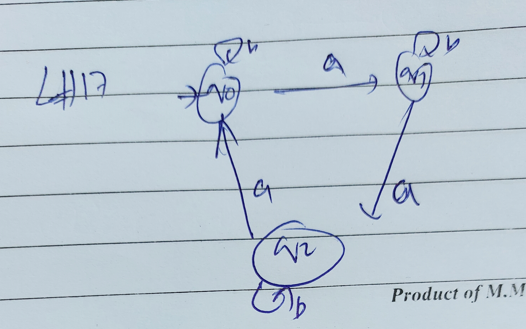 b b
L#17 q0 a q1
a a
q2
b
Product of M.M